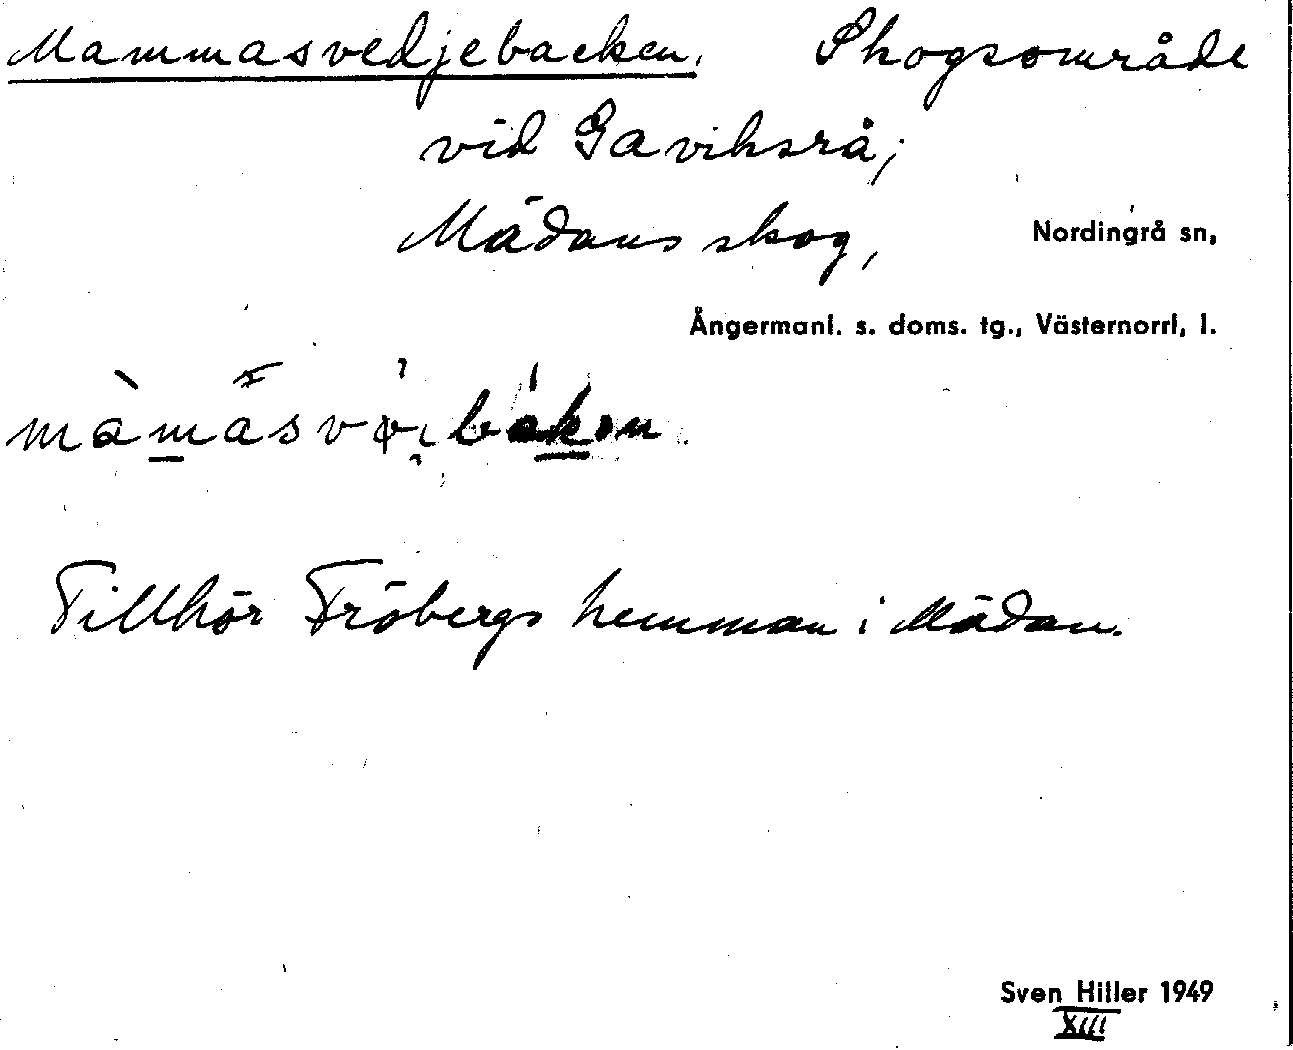 Mammasvedjebacken. Skogsområde
vid Gaviksrå;
Mädans skog, Nordingrå sn,
Ångermanl. s. doms. tg., Västernorrl, l.
Tillhör Fröbergs hemman i Mädan.
Sven Hiller 1949
XIII